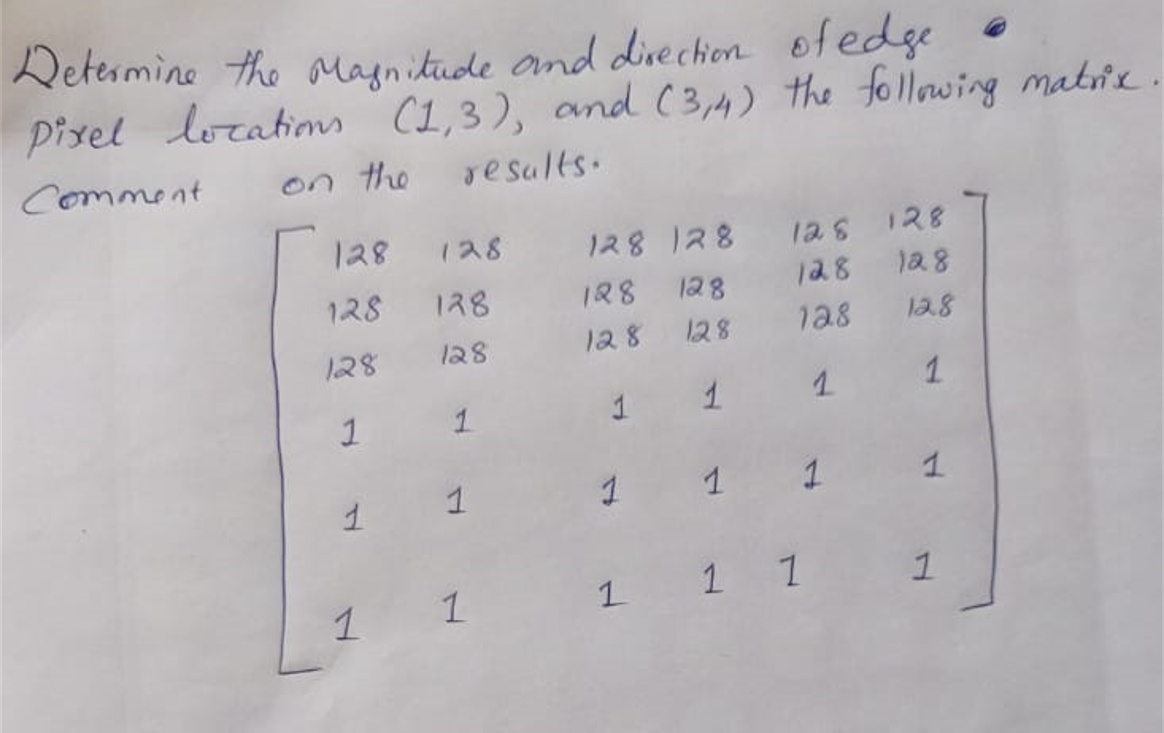 Determine the Magnitude and direction of edge
pixel locations (1,3), and (3,4) the following matrix.
Comment on the results.
128 128 128 128 128 128
128 128 128 128 128 128
128 128 128 128 128 128
1 1 1 1 1 1
1 1 1 1 1 1
1 1 1 1 1 1